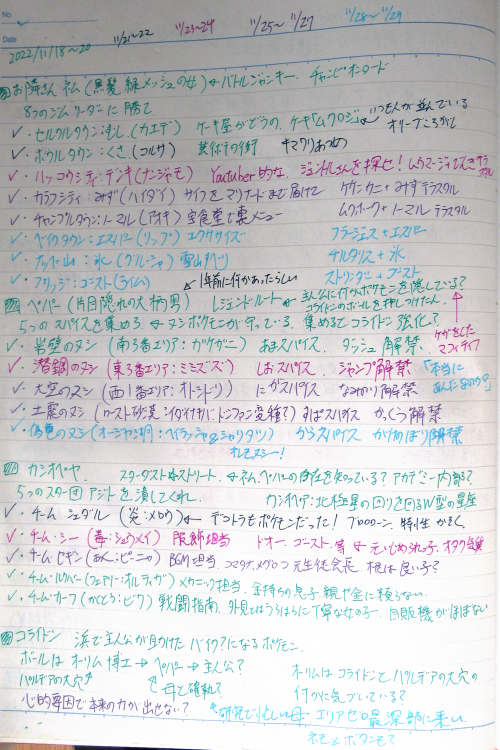 No.
Date
2022/11/18~20 11/21~22 11/23~24 11/25~11/27 11/28~11/29
お隣さん ネム (黒髪 緑メッシュの女) ← バトルジャンキー、チャンピオンロード
8つのジムリーダーに勝て
✓・セルクルタウン:むし(カエデ) ケーキ屋がどうの、ケーキ「ムクロジ」← いつも人が並んでいる
オリーブころがし
✓・ボウルタウン:くさ(コルサ) 芸術の街 キマワリあつめ
✓・ハッコウシティ:デンキ(ナンジャモ) Youtuber的な、ジェントルさんを探せ! ムウマージでんきテラスタル
✓・カラフシティ:みず(ハイダイ) サイフをマリナードまで届けて ケケンカニ+みずテラスタル
✓・チャンプルタウン:ノーマル(アオキ) 宝食堂で裏メニュー ムクホーク+ノーマル テラスタル
✓・ベイクタウン:エスパー(リップ) エクササイズ フラージェス+エスパー
✓・ナッペ山:氷(グルーシャ) 雪山すべり チルタリス+氷
✓・フリッジ:ゴースト(ライム) ストリンダー+ゴースト
↙1年前に何かあったらしい
ペパー (片目隠れの大柄男) レジェンドルート ← 主人公に何かポケモンを隠している?
コライドンのボールを押しつけたんん
5つのスパイスを集める ← ヌシポケモンが守っている、集めるとコライドン強化?
ケガをしたマフィティフ
✓・岩壁のヌシ (南3番エリア:ガケガニ) あまスパイス、ダッシュ解禁
✓・潜鋼のヌシ (東3番エリア:ミミズズ) しおスパイス ジャンプ解禁
「本当にあんたなのか?」
✓・大空のヌシ (西1番エリア:オトシドリ) にがスパイス なみのり解禁
✓・土震のヌシ (ロースト砂漠:イダイナキバ:ドンファン変種?) すぱスパイス かっくう解禁
✓・偽竜のヌシ (オージャ湖:ヘイラッシャ&シャリタツ) からスパイス かけのぼり解禁
オレヌシー!
カシオペヤ スターダスト☆ストリート ← ネム、ペパーの存在を知っている?アカデミー内部?
5つのスター団アジトを潰してくれ カシオペア:北極星の回りを回るW型の星座
✓・チーム シュダル (炎:メロウ) ← デコトラもポケモンだった!ブロローン、特性 かそく
✓・チーム・シー (毒:シュウメイ) 服飾担当 ドオー、ゴースト、等 ← 元いじめられっ子、オタク気質
✓・チーム セギン (あく:ピーニャ) BGM担当 コマタナ、元生徒会長、根は良い子?
✓・チーム・ルクバー (フェアリー:オルティガ) メカニック担当、金持ちの息子 親や金に頼らない
✓・チーム・カーフ (かくとう:ビワ) 戦闘指南、外見とはうらはらに丁寧な女の子
コライドン 浜で主人公が助けたバイク?になるポケモン
ボールはオーリム博士 → ペパー → 主人公?
オーリムはコライドンとパルデアの大穴の何かに気づいている?
パルデアの大穴
母で確執?
心的要因で本来の力が出せない?
研究で忙しい母、エリアゼロ最深部に来い
ネモとボタンも?